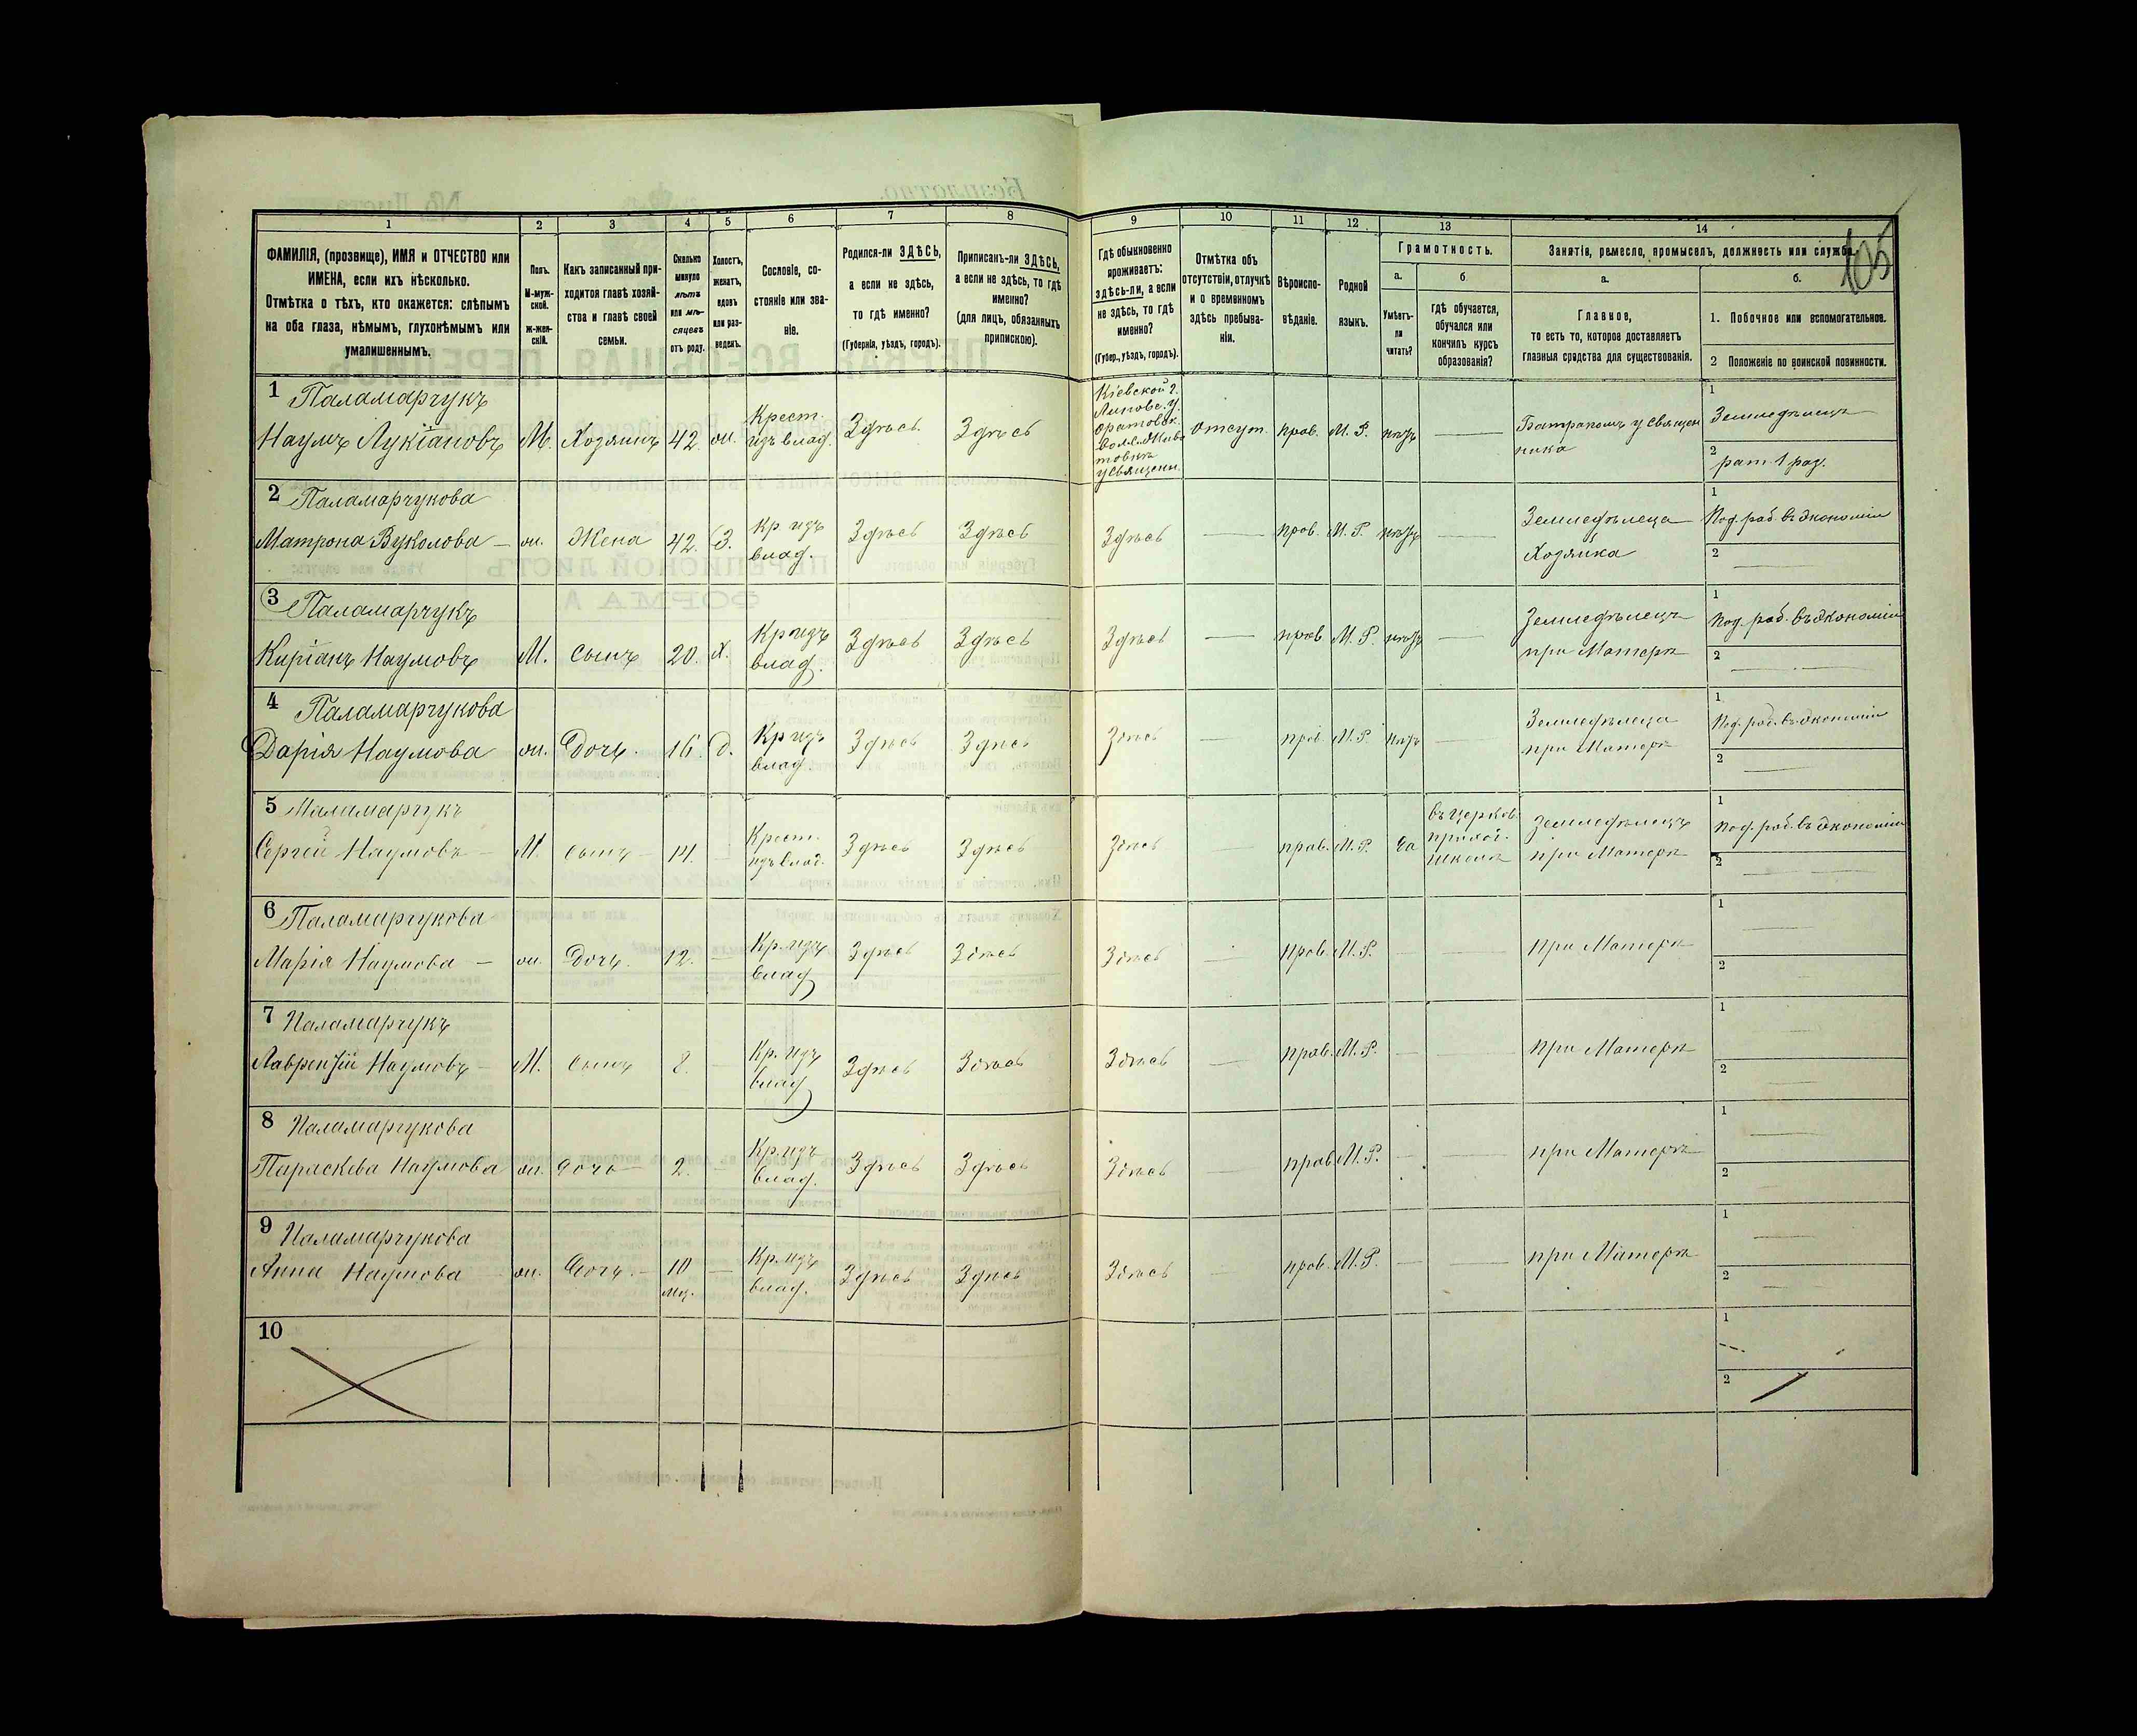 105
1 2 3 4 5 6 7 8 9 10 11 12 13 14
ФАМИЛІЯ, (прозвище), ИМЯ и ОТЧЕСТВО или
ИМЕНА, если ихъ нѣсколько.
Отмѣтка о тѣхъ, кто окажется: слѣпымъ
на оба глаза, нѣмымъ, глухонѣмымъ или
умалишеннымъ.
Полъ.
М-муж-
ской.
Ж-жен-
скій.
Какъ записанный при-
ходится главѣ хозяй-
ства и главѣ своей
семьи.
Сколько
минуло
лѣтъ
или мѣ-
сяцевъ
отъ роду.
Холостъ,
женатъ,
вдовъ
или раз-
веденъ.
Сословіе, со-
стояніе или зва-
ніе.
Родился-ли ЗДѢСЬ,
а если не здѣсь,
то гдѣ именно?
(Губернія, уѣздъ, городъ).
Приписанъ-ли ЗДѢСЬ,
а если не здѣсь, то гдѣ
именно?
(для лицъ, обязанныхъ
припискою).
Гдѣ обыкновенно
проживаетъ:
здѣсь-ли, а если
не здѣсь, то гдѣ
именно?
(Губер., уѣздъ, городъ).
Отмѣтка объ
отсутствіи, отлучкѣ
и о временномъ
здѣсь пребыва-
ніи.
Вѣроиспо-
вѣданіе.
Родной
языкъ.
Грамотность.
а.
Умѣетъ-
ли
читать?
б.
гдѣ обучается,
обучался или
кончилъ курсъ
образованія?
Занятіе, ремесло, промыселъ, должность или служба.
а.
Главное,
то есть то, которое доставляетъ
главныя средства для существованія.
б.
1. Побочное или вспомогательное.
2 Положеніе по воинской повинности.
1 Паламарчукъ
Наумъ Лукіановъ М. Хозяинъ 42 ж.
Крест.
изъ влад.
Здѣсь Здѣсь
Кіевской г.
Липовс. у.
Оратовск.
вол. с. Жива
товкѣ
у Священ.
отсут. прав. М. Р. нѣтъ —
Батракомъ у священ
ника
1 Земледѣлецъ
2 рат. 1 раз.
2 Паламарчукова
Матрона Вуколова — ж. Жена 42. З.
Кр. изъ
влад.
Здѣсь Здѣсь Здѣсь — прав. М. Р. нѣтъ —
Земледѣлеца
Хозяйка
1 Под. раб. въ экономіи
2 —
3 Паламарчукъ
Киріанъ Наумовъ М. Сынъ 20. Х.
Кр изъ
влад.
Здѣсь Здѣсь Здѣсь — прав М. Р. нѣтъ —
Земледѣлецъ
при Матери
1 Под. раб. въ экономіи
2 —
4 Паламарчукова
Дарія Наумова ж. Дочь. 16. д.
Кр изъ
влад.
Здѣсь Здѣсь Здѣсь — прав. М. Р. нѣтъ —
Земледѣлеца
при Матери
1 Под. раб. въ экономіи
2 —
5 Паламарчукъ
Сергей Наумовъ — М. сынъ — 14. —
Крест.
изъ влад.
Здѣсь Здѣсь Здѣсь — прав. М. Р. Да
въ церков.
приход.
школѣ
Земледѣлецъ
при Матери
1 Под. раб. въ экономіи
2 —
6 Паламарчукова
Марія Наумова — ж. Дочь. 12. —
Кр. изъ
влад
Здѣсь Здѣсь Здѣсь — прав. М. Р. — —
при Матери
1 —
2 —
7 Паламарчукъ
Лаврентій Наумовъ — М. Сынъ 8. —
Кр. изъ
влад
Здѣсь Здѣсь Здѣсь — прав. М. Р. — —
при Матери
1 —
2 —
8 Паламарчукова
Параскева Наумова ж. дочь — 2. —
Кр. изъ
влад.
Здѣсь Здѣсь Здѣсь — прав. М. Р. — —
при Матери
1 —
2 —
9 Паламарчукова
Анна Наумова — ж. Дочь. — 10 —
мц.
Кр. изъ
влад.
Здѣсь Здѣсь Здѣсь — прав. М. Р. — —
при Матери
1 —
2 —
10
1
2